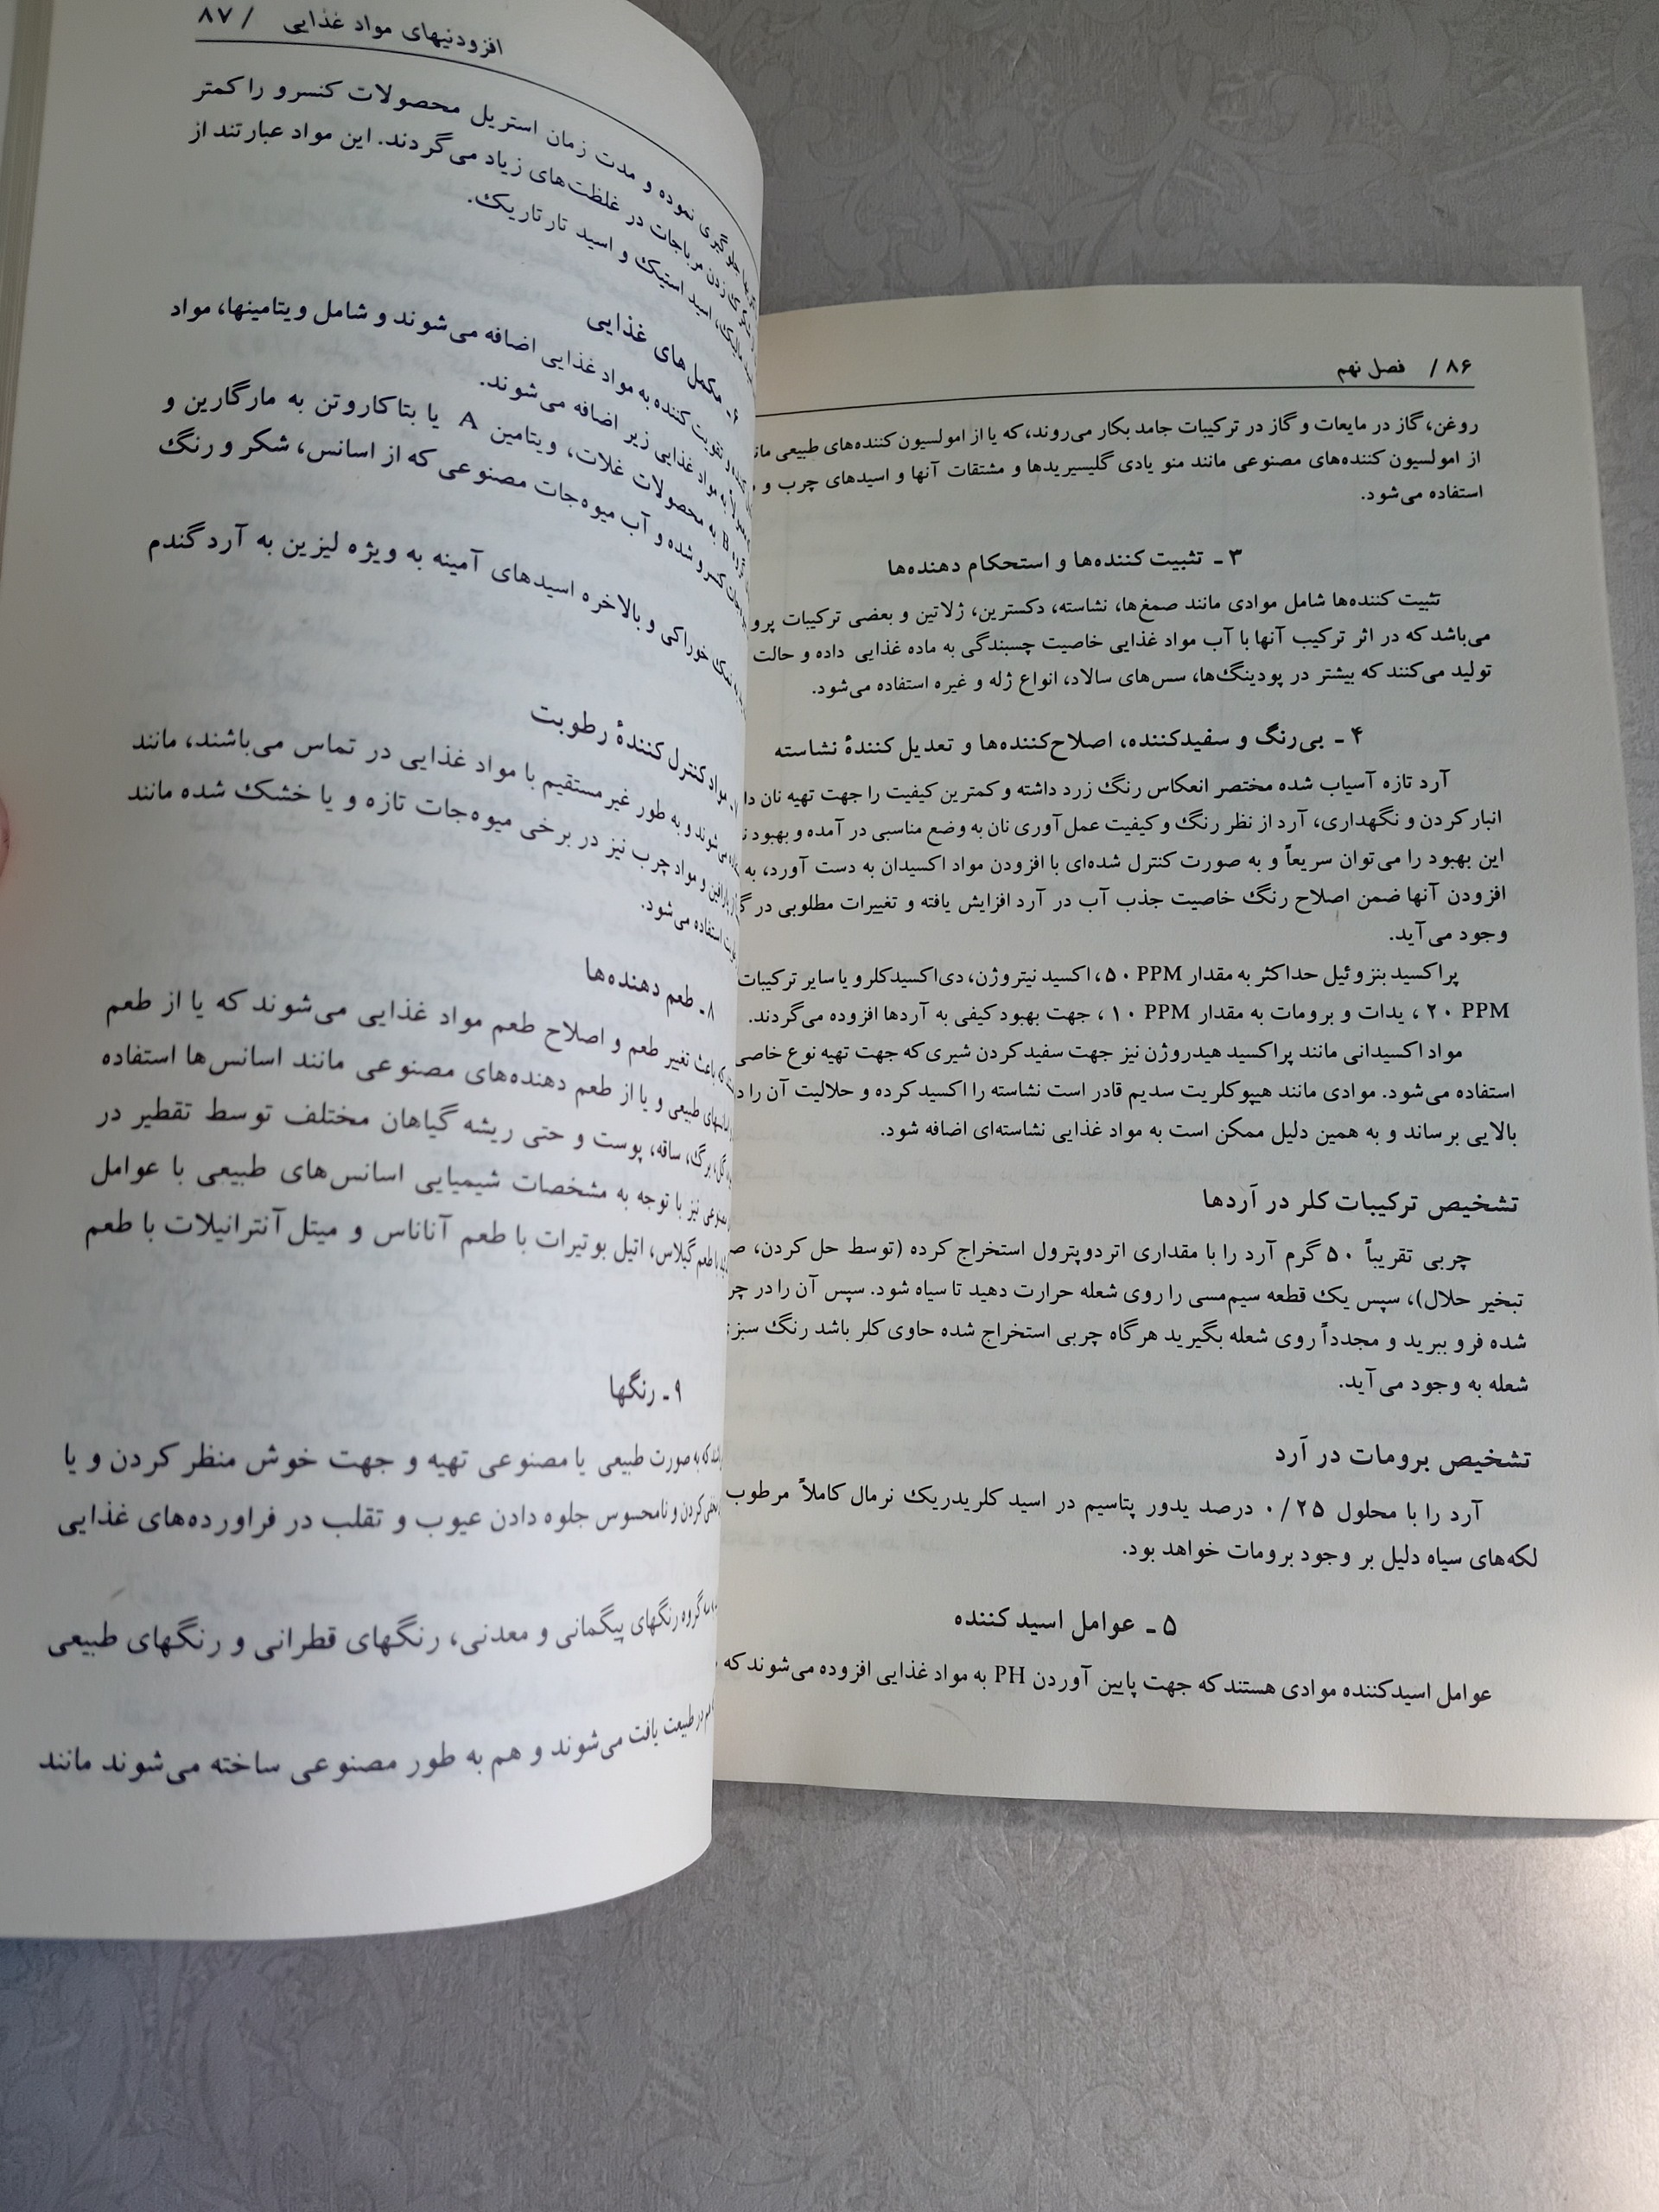 ۸۶ / فصل نهم
روغن، گاز در مایعات و گاز در ترکیبات جامد بکار می‌روند، که یا از امولسیون کننده‌های طبیعی
از امولسیون کننده‌های مصنوعی مانند منو یادی گلیسیریدها و مشتقات آنها و اسیدهای چرب و
استفاده می‌شود.
۳ ـ تثبیت کننده‌ها و استحکام دهنده‌ها
تثبیت کننده‌ها شامل موادی مانند صمغ‌ها، نشاسته، دکسترین، ژلاتین و بعضی ترکیبات
می‌باشد که در اثر ترکیب آنها با آب مواد غذایی خاصیت چسبندگی به ماده غذایی داده و حالت
تولید می‌کنند که بیشتر در پودینگ‌ها، سس‌های سالاد، انواع ژله و غیره استفاده می‌شود.
۴ ـ بی‌رنگ و سفیدکننده، اصلاح‌کننده‌ها و تعدیل کنندهٔ نشاسته
آرد تازه آسیاب شده مختصر انعکاس رنگ زرد داشته و کمترین کیفیت را جهت تهیه نان
انبار کردن و نگهداری، آرد از نظر رنگ و کیفیت عمل‌آوری نان به وضع مناسبی در آمده و بهبود
این بهبود را می‌توان سریعاً و به صورت کنترل شده‌ای با افزودن مواد اکسیدان به دست آورد، به
افزودن آنها ضمن اصلاح رنگ خاصیت جذب آب در آرد افزایش یافته و تغییرات مطلوبی در
وجود می‌آید.
پراکسید بنزوئیل حداکثر به مقدار ۵۰ PPM، اکسید نیتروژن، دی‌اکسیدکلر و یا سایر ترکیبات
۲۰ PPM ، یدات و برومات به مقدار ۱۰ PPM ، جهت بهبود کیفی به آردها افزوده می‌گردند.
مواد اکسیدانی مانند پراکسید هیدروژن نیز جهت سفید کردن شیری که جهت تهیه نوع خاصی
استفاده می‌شود. موادی مانند هیپوکلریت سدیم قادر است نشاسته را اکسید کرده و حلالیت آن را
بالایی برساند و به همین دلیل ممکن است به مواد غذایی نشاسته‌ای اضافه شود.
تشخیص ترکیبات کلر در آردها
چربی تقریباً ۵۰ گرم آرد را با مقداری اتردوپترول استخراج کرده (توسط حل کردن،
تبخیر حلال)، سپس یک قطعه سیم‌مسی را روی شعله حرارت دهید تا سیاه شود. سپس آن را در
شده فرو ببرید و مجدداً روی شعله بگیرید هرگاه چربی استخراج شده حاوی کلر باشد رنگ
شعله به وجود می‌آید.
تشخیص برومات در آرد
آرد را با محلول ۰/۲۵ درصد یدور پتاسیم در اسید کلریدریک نرمال کاملاً مرطوب
لکه‌های سیاه دلیل بر وجود برومات خواهد بود.
۵ ـ عوامل اسیدکننده
عوامل اسیدکننده موادی هستند که جهت پایین آوردن PH به مواد غذایی افزوده می‌شوند که
افزودنیهای مواد غذایی / ۸۷
جلوگیری نموده و مدت زمان استریل محصولات کنسرو را کمتر
زدن مرباجات در غلظت‌های زیاد می‌گردند. این مواد عبارتند از
اسید استیک و اسید تارتاریک.
۶ ـ مکمل‌های غذایی
تقویت کننده به مواد غذایی اضافه می‌شوند و شامل ویتامینها، مواد
به مواد غذایی زیر اضافه می‌شوند.
B به محصولات غلات، ویتامین A یا بتاکاروتن به مارگارین و
کنسرو شده و آب میوه‌جات مصنوعی که از اسانس، شکر و رنگ
نمک خوراکی و بالاخره اسیدهای آمینه به ویژه لیزین به آرد گندم
مواد کنترل کنندهٔ رطوبت
می‌شوند و به طور غیر مستقیم با مواد غذایی در تماس می‌باشند، مانند
پارافین و مواد چرب نیز در برخی میوه‌جات تازه و یا خشک شده مانند
استفاده می‌شود.
۸ ـ طعم دهنده‌ها
که باعث تغییر طعم و اصلاح طعم مواد غذایی می‌شوند که یا از طعم
طبیعی و یا از طعم دهنده‌های مصنوعی مانند اسانس‌ها استفاده
گل، برگ، ساقه، پوست و حتی ریشه گیاهان مختلف توسط تقطیر در
نیز با توجه به مشخصات شیمیایی اسانس‌های طبیعی با عوامل
با طعم گیلاس، اتیل بوتیرات با طعم آناناس و میتل آنترانیلات با طعم
۹ ـ رنگها
که به صورت طبیعی یا مصنوعی تهیه و جهت خوش منظر کردن و یا
کردن و نامحسوس جلوه دادن عیوب و تقلب در فراورده‌های غذایی
گروه رنگهای پیگمانی و معدنی، رنگهای قطرانی و رنگهای طبیعی
در طبیعت یافت می‌شوند و هم به طور مصنوعی ساخته می‌شوند مانند